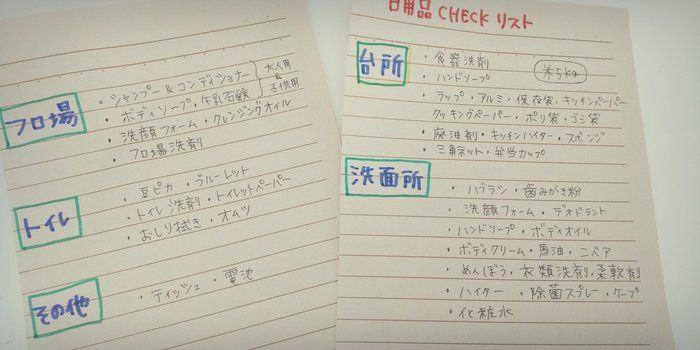 フロ場
・シャンプー & コンディショナー
大人用
&
子供用
・ボディソープ・牛乳石鹸
・洗顔フォーム・クレンジングオイル
・フロ場洗剤
トイレ
・豆ピカ・ブルーレット
・トイレ洗剤・トイレットペーパー
・おしり拭き・オムツ
その他
・ティッシュ・電池
日用品 CHECK リスト
台所
・食器洗剤
・ハンドソープ
米5kg
・ラップ・アルミ・保存袋・キッチンペーパー
クッキングペーパー・ポリ袋・ゴミ袋
・廃油剤・キッチンハイター・スポンジ
・三角ネット・弁当カップ
洗面所
・ハブラシ・歯みがき粉
洗顔フォーム・デオドラント
・ハンドソープ・ボディオイル
・ボディクリーム・馬油・ニベア
・めんぼう・衣類洗剤・柔軟剤
・ハイター・除菌スプレー・ケープ
・化粧水